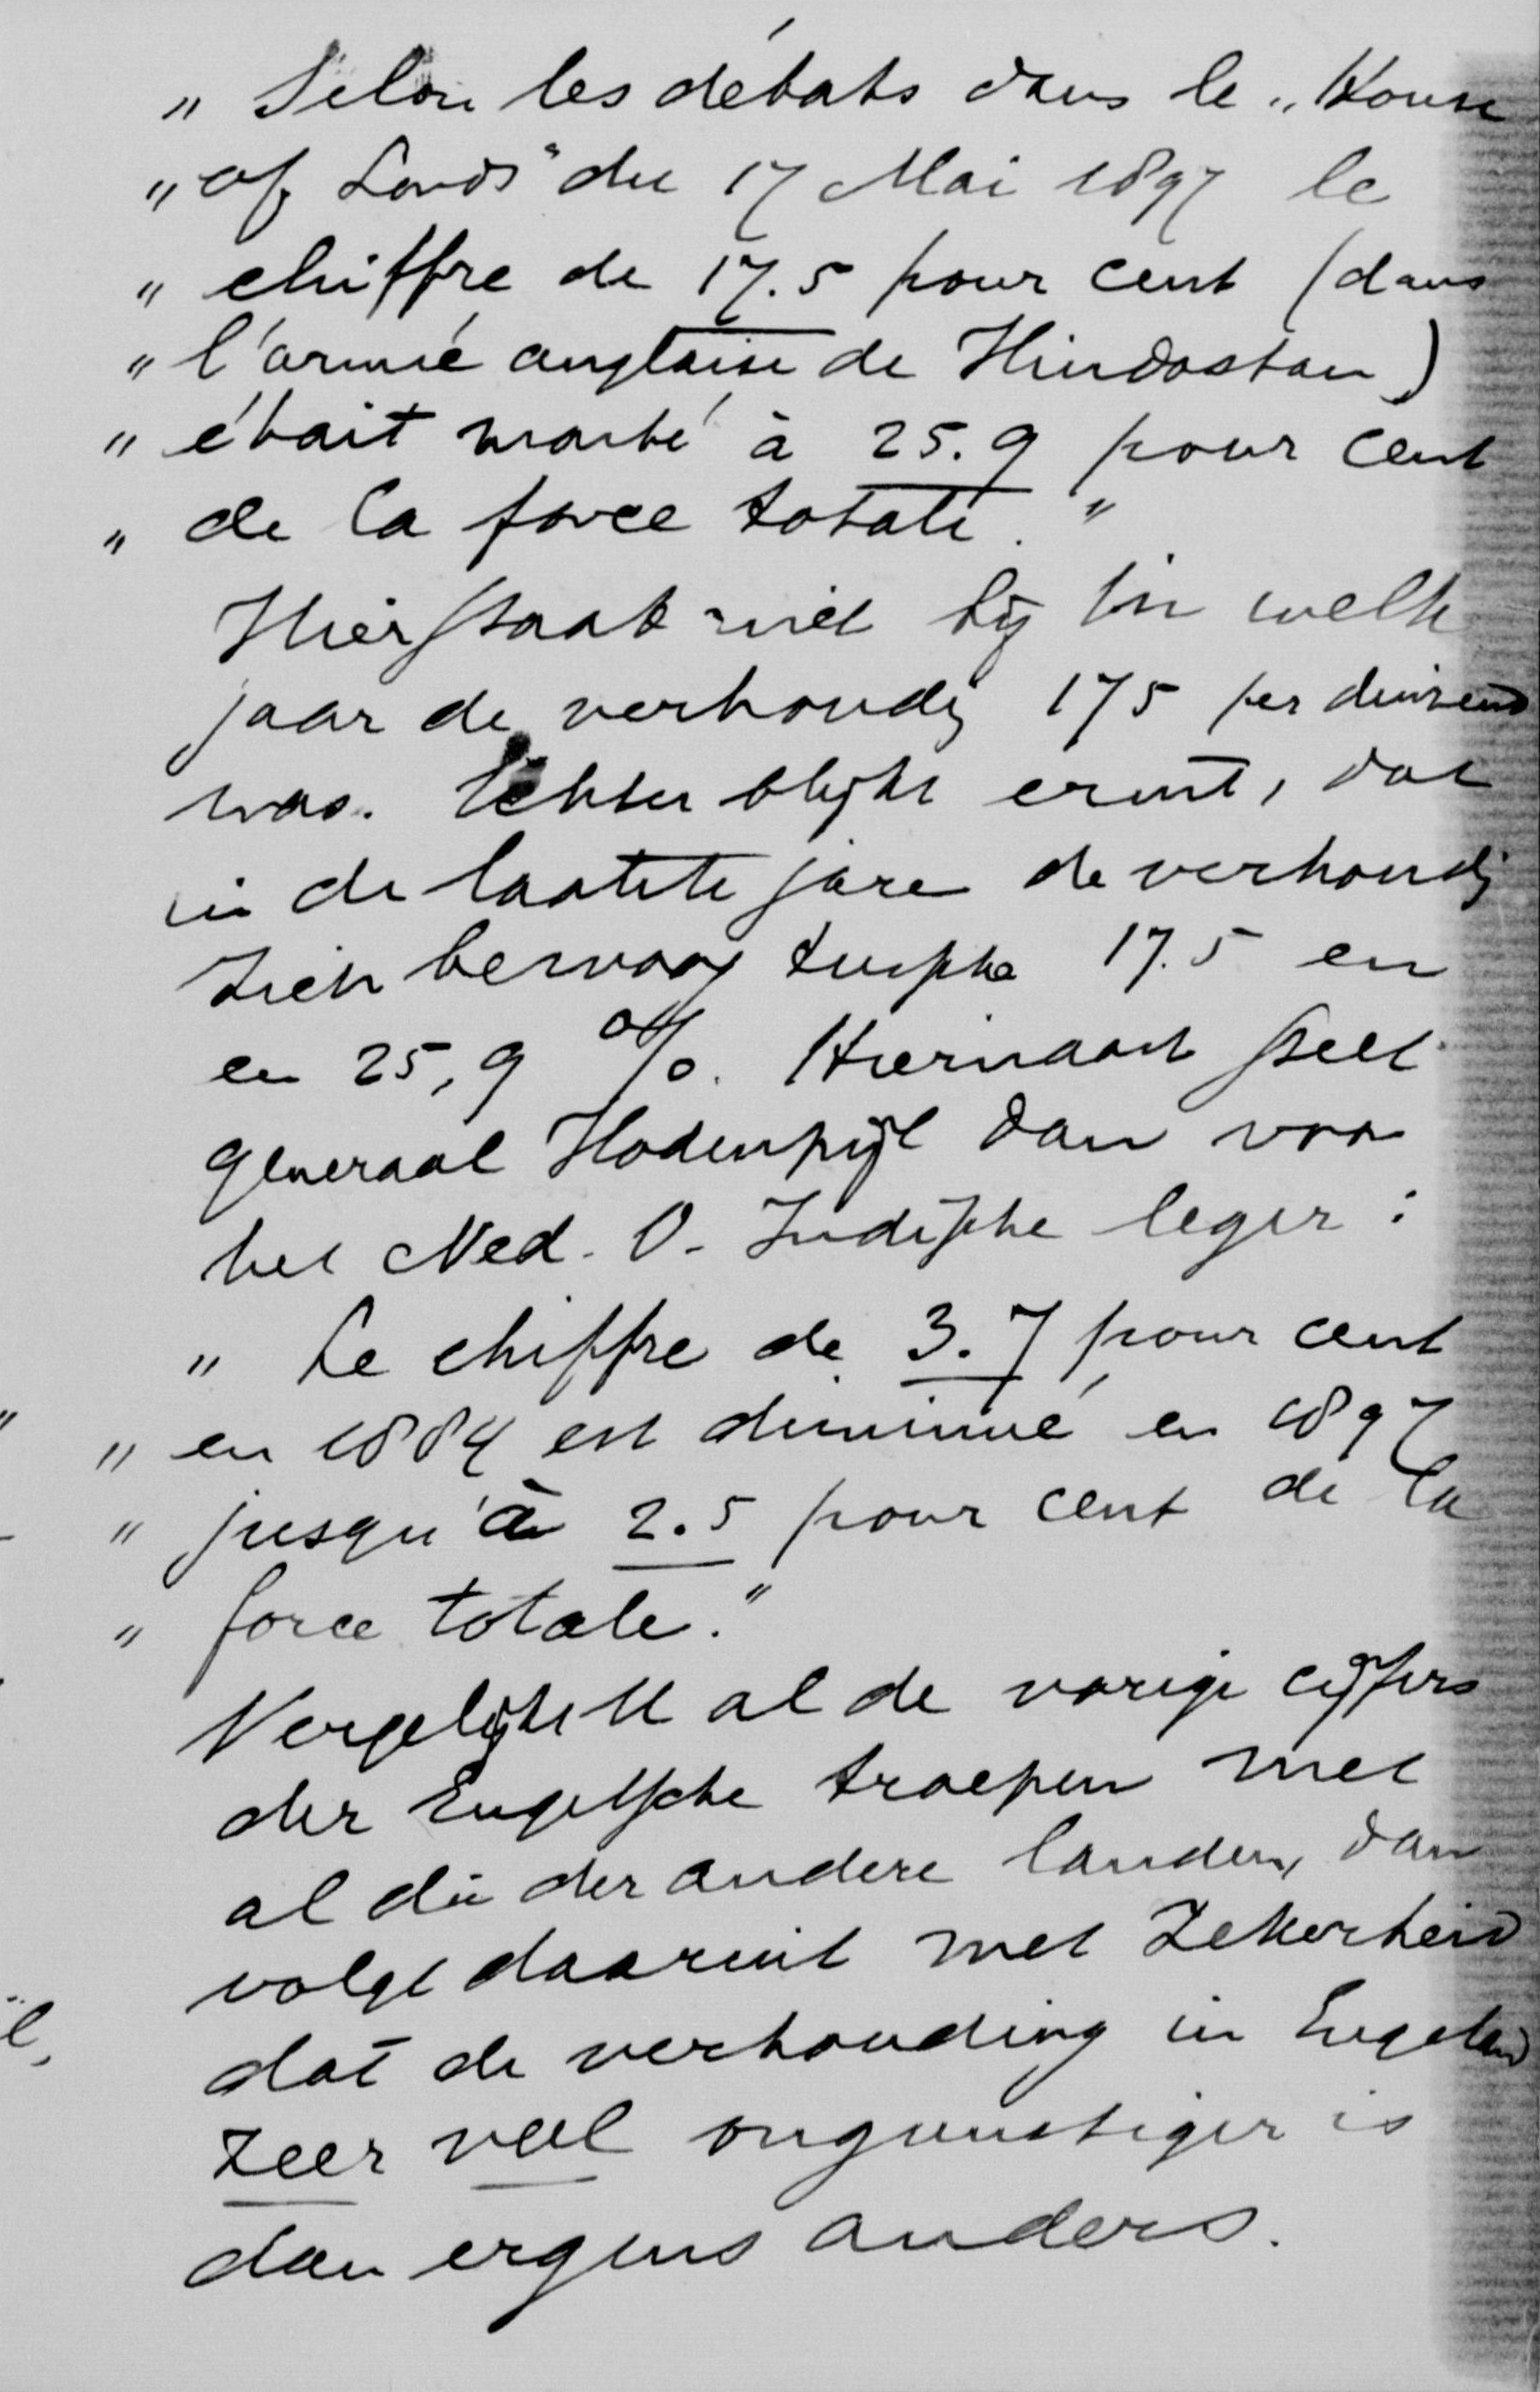 „ Selon les débats dans le „House
„ of Lords" du 17 Mai 1897 le
„ chiffre de 17.5 pour cent (dans
„ l'armée anglaise de Hindostan)
„ était monté à 25.9 pour cent
„ de la force totale."
Hier staat niet bij in welk
jaar de verhoudg 175 per duizend
was. Echter blijkt eruit, dat
in de laatste jare de verhoudg
zich bewoog tussche 17.5 en
en 25,9 %. Hiernaast stelt
generaal Hodenpijl dan voor
het Ned. O. Indische leger:
„ Le chiffre de 3.7 pour cent
„ en 1884 est diminué en 1897
„ jusqu'à 2.5 pour cent de la
„ force totale."
Vergelijkt U al de vorige cijfers
der Engelsche troepen met
al die der andere landen, dan
volgt daaruit met zekerheid
dat de verhouding in Engeland
zeer veel ongunstiger is
dan ergens anders.